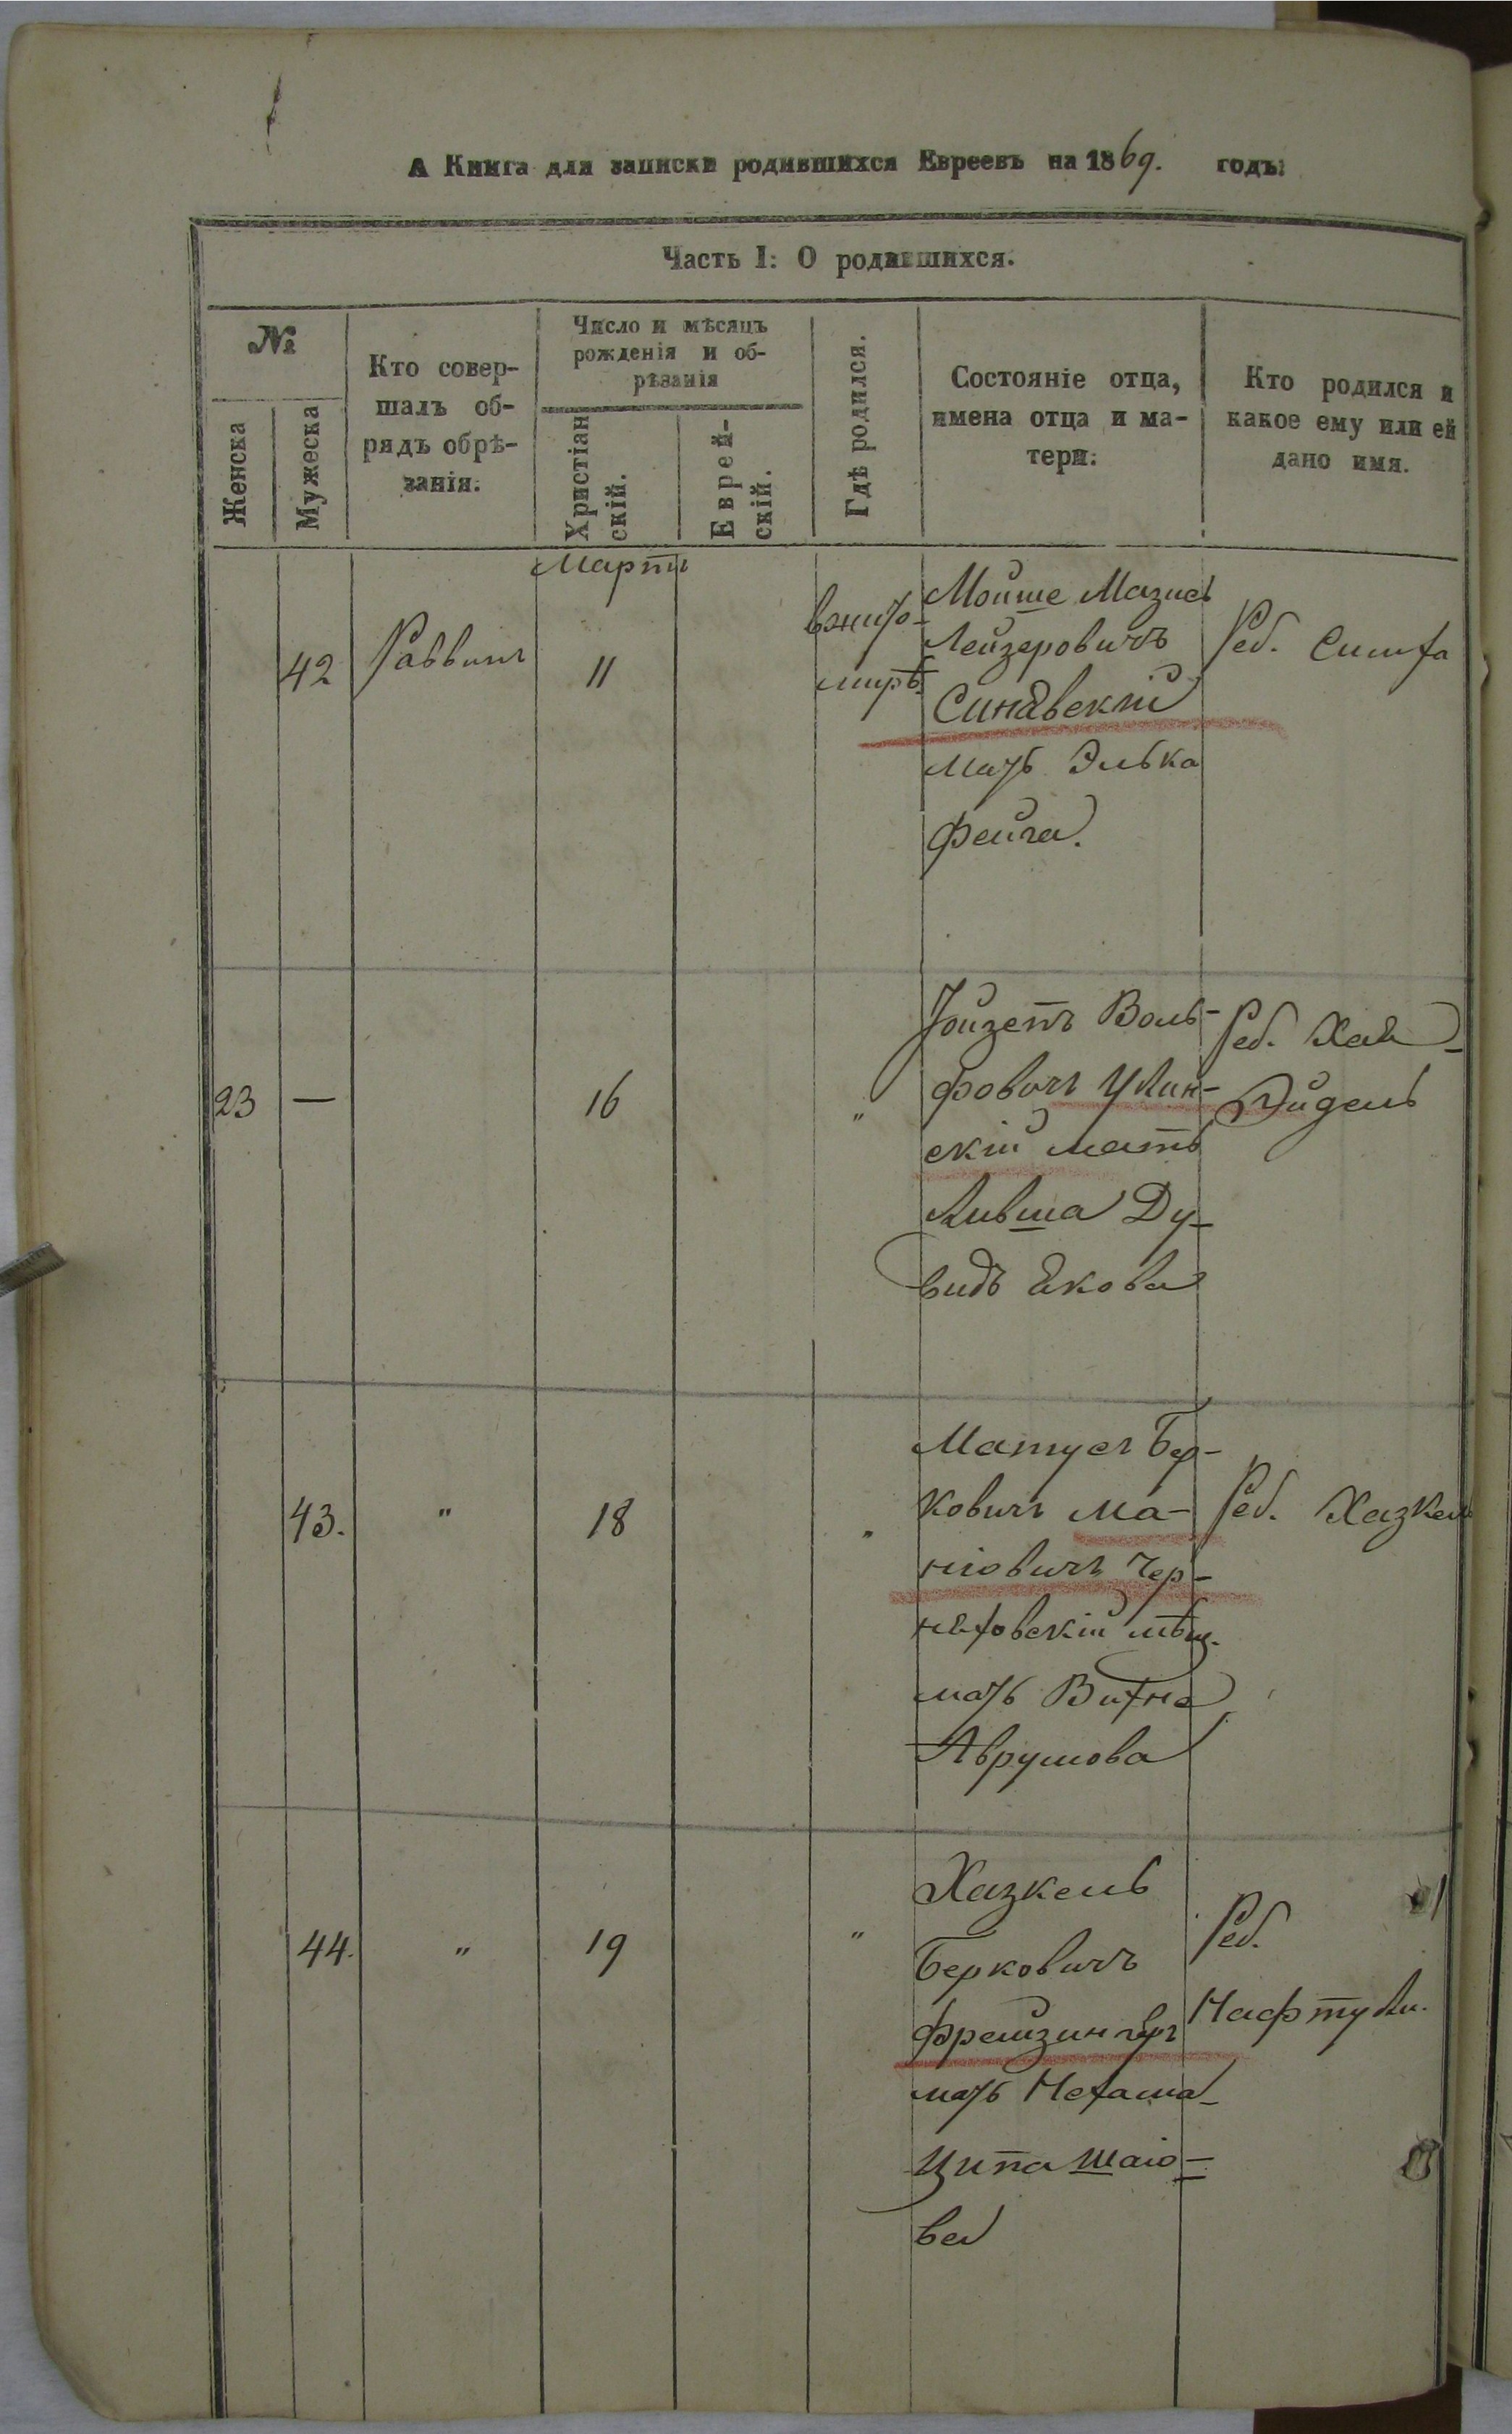 А Книга для записки родившихся Евреевъ на 1869. годъ:
Часть I: О родившихся.
№
Женска
Мужеска
Кто совер-
шалъ об-
рядъ обрѣ-
занія.
Число и мѣсяцъ
рожденія и об-
рѣзанія
Христіан
скій.
Еврей-
скій.
Гдѣ родился.
Состояніе отца,
имена отца и ма-
тери.
Кто родился и
какое ему или ей
дано имя.
Мартъ
42
Раввинъ
11
вжито-
мирѣ.
Мойше Мазись
Лейзеровичъ
Синявскій
мать Элька
Фейга.
Реб. Симха
23
—
16
"
Іойзепъ Воль-
фовичъ Улин-
скій мать
Ливша Ду-
видъ Якова
Реб. Хая-
Эйдель
43.
"
18
"
Матусъ Бер-
ковичъ Ма-
ніовичъ Чер-
няховскій мѣщ.
мать Вихна
Аврумова
Реб. Хазкель
44.
"
19
"
Хазкель
Берковичъ
Фрейзингеръ
мать Нехама-
Ципа Шаіо-
ва
Реб.
Нафтули.